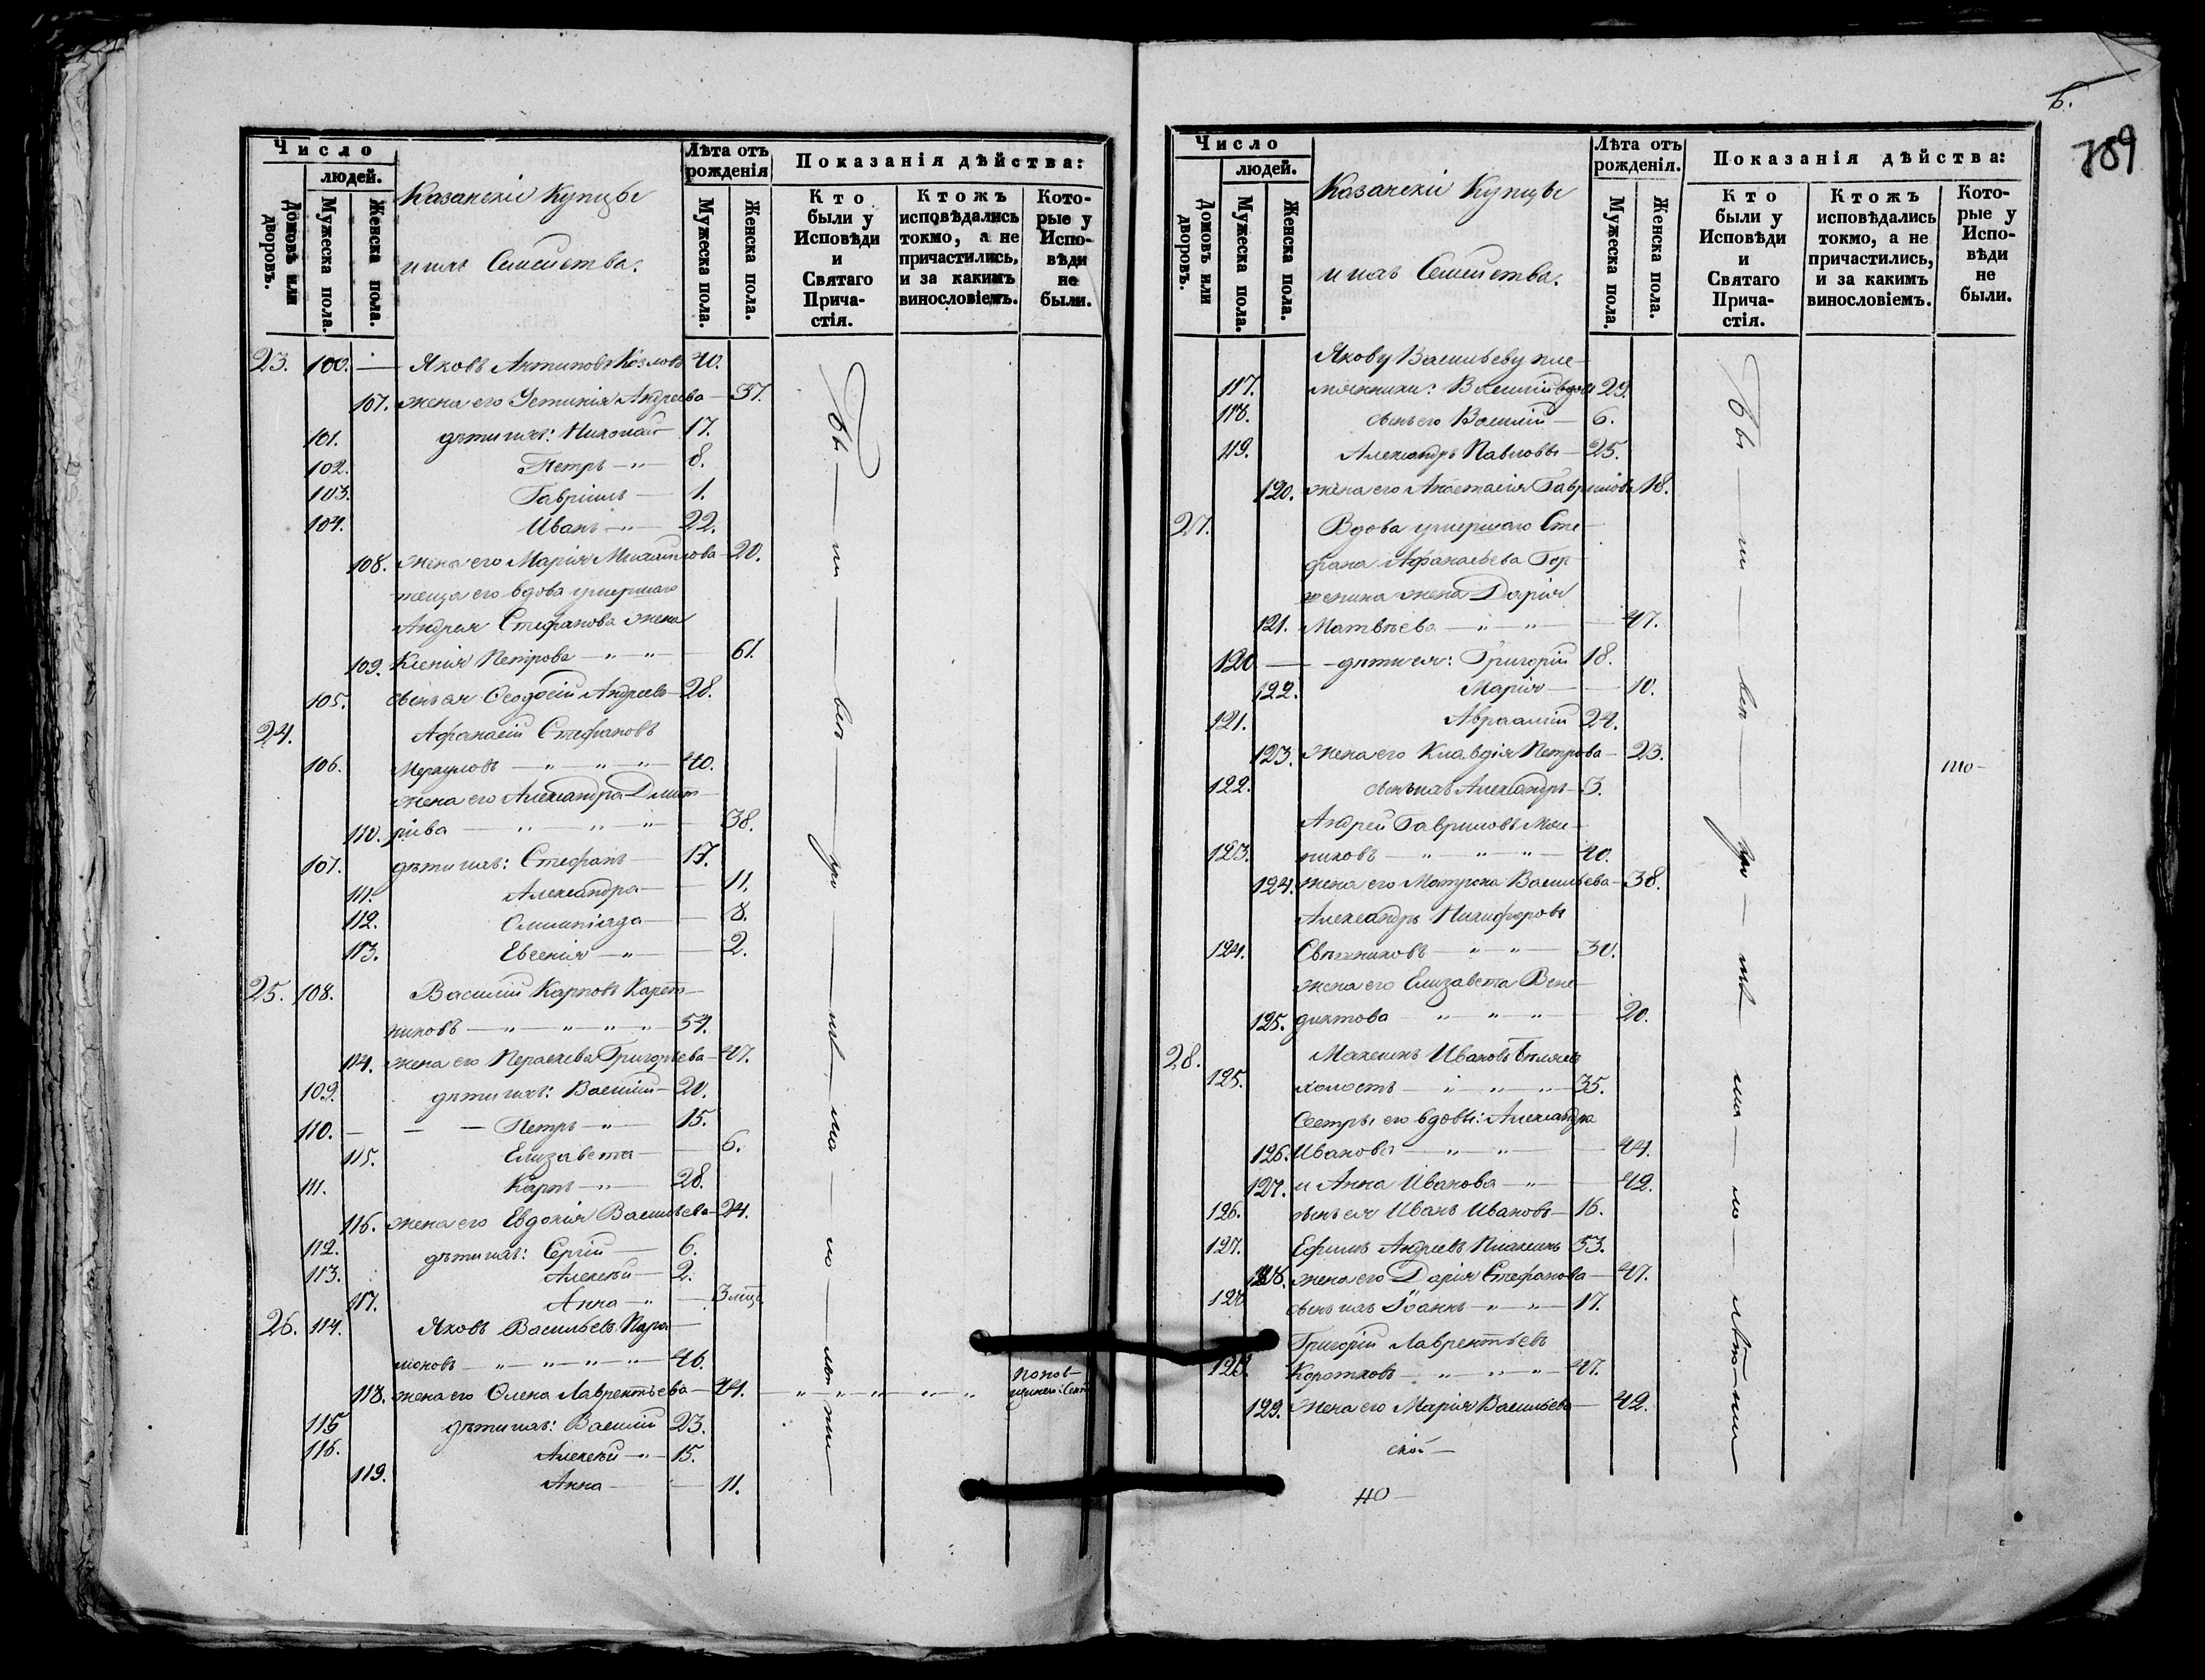 6.
789
Число
людей.
Домовъ или дворовъ.
Мужеска пола.
Женска пола.
Казанскіе Купцы
и ихъ Семейства.
Лѣта отъ рожденія
Мужеска пола.
Женска пола.
Показанія дѣйства:
Кто были у Исповѣди и Святаго Причастія.
Ктожъ исповѣдались токмо, а не причастились, и за какимъ винословіемъ.
Которые у Исповѣди не были.
23. 100. — Яковъ Антиповъ Козловъ 40.
107. жена его Устинія Андреева — 37.
101. дѣти ихъ: Николай 17.
102. Петръ — " — 8.
103. Гавріилъ — 1.
104. Иванъ — " — 22.
108. жена его Марія Михайлова — 20.
теща его вдова умершаго
Андрея Стефанова жена
109. Ксенія Петрова — " — " — 61.
105. сынъ ея Ѳеодосій Андреевъ — 28.
24. Афанасій Стефановъ
106. Меркуловъ — " — " — " — 40.
жена его Александра Дмит-
110. ріева — " — " — " — 38.
107. дѣти ихъ: Стефанъ — 17.
111. Александра — 11.
112. Олимпіада — 8.
113. Евгенія — " — 2.
25. 108. Василій Карповъ Карет-
никовъ — " — " — " — " — 54.
114. жена его Параскева Григорьева — 47.
109. дѣти ихъ: Василій — 20.
110. — — — Петръ — " — 15.
115. Елизавета — 6.
111. Карпъ — " — 28.
116. жена его Евдокія Васильева — 24.
112. дѣти ихъ: Сергій — 6.
113. Алексѣй — 2.
117. Анна — " — 3 мѣц.
26. 114. Яковъ Васильевъ Пара-
моновъ — " — " — " — " — 46.
118. жена его Олена Лаврентьева — 44. — " — " — " — " — "
115 дѣти ихъ: Василій 23.
116. Алексѣй — " — 15.
119. Анна — 11.
Число
людей.
Домовъ или дворовъ.
Мужеска пола.
Женска пола.
Казанскіе Купцы
и ихъ Семейства.
Лѣта отъ рожденія.
Мужеска пола.
Женска пола.
Показанія дѣйства:
Кто были у Исповѣди и Святаго Причастія.
Ктожъ исповѣдались токмо, а не причастились, и за какимъ винословіемъ.
Которые у Исповѣди не были.
Якову Васильеву пле-
117. мянники: Василій вдов 29.
118. сынъ его Василій — 6.
119. Александръ Павловы — 25.
120. жена его Анастасія Гаврилова 18.
27. Вдова умершаго Сте-
фана Афанасьева Гор-
шенина жена Дарія
121. Матвѣева — " — " — 47.
120 — дѣти ея: Григорій 18.
122. Марія — 10.
121. Авраамій 24.
123. жена его Клавдія Петрова — 23.
122. сынъ ихъ Александръ — 3.
Андрей Гавриловъ
123. никовъ — " — " — " — 40.
124. жена его Матрона Васильева — 38.
Александръ Никифоровъ
124. Свѣшниковъ — " — " — 30.
жена его Елизавета Вене-
125. диктова — " — " — " — 20.
28. Максимъ Ивановъ Бѣляевъ
125. холостъ — " — " — " — 35.
Сестры его вдовы: Александра
126. Иванова — " — " — 44.
127. и Анна Иванова — " — 42.
126. сынъ ея Иванъ Ивановъ — 16.
127. Ефимъ Андреевъ 53.
128. жена его Дарія Стефанова — 47.
128 сынъ ихъ Іоаннъ — " — " — 17.
Григорій Лаврентьевъ
129. Коротковъ — " — " — " — 47.
129. жена его Марія Васильева — 42.
ской —
но —